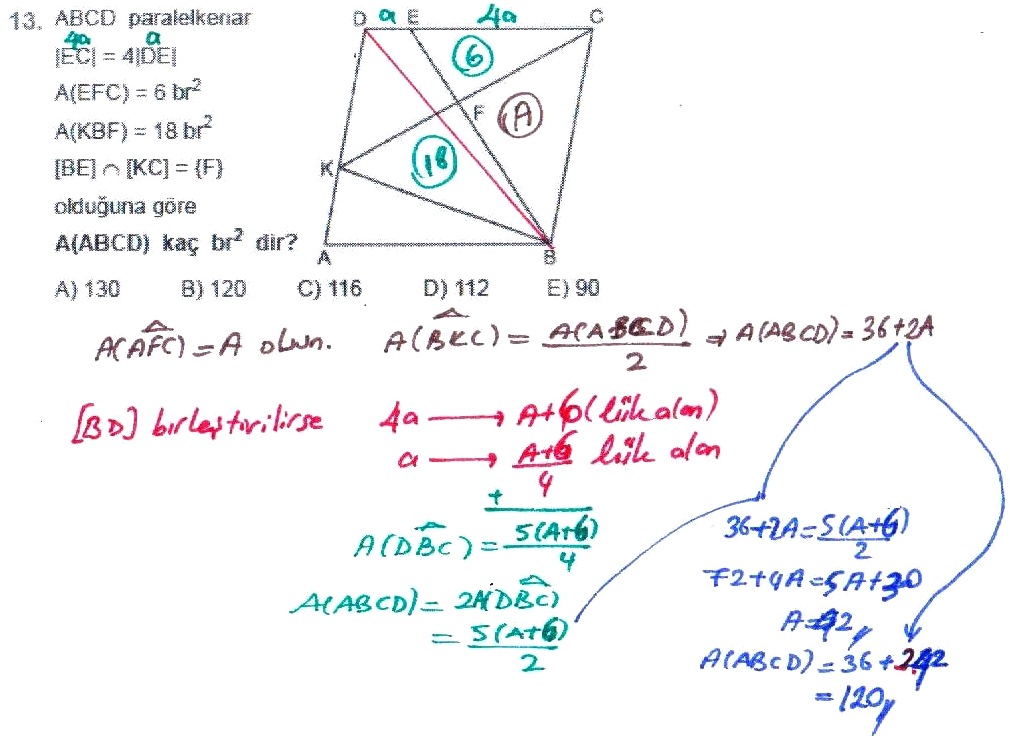 13. ABCD paralelkenar
4a a
|EC| = 4|DE|
A(EFC) = 6 br²
A(KBF) = 18 br²
[BE] ∩ [KC] = {F}
olduğuna göre
A(ABCD) kaç br² dir?
D a E 4a C
6
F A
18
K
A B
A) 130 B) 120 C) 116 D) 112 E) 90
A(AFC) = A olsun. A(BKC) = A(ABCD)/2 ⇒ A(ABCD) = 36+2A
[BD] birleştirilirse 4a → A+6 (lük alan)
a → A+6/4 lük alan
+
A(DBC) = 5(A+6)/4
A(ABCD) = 2A(DBC)
= 5(A+6)/2
36+2A = 5(A+6)/2
72+4A = 5A+30
A = 42,
A(ABCD) = 36+2.42
= 120,